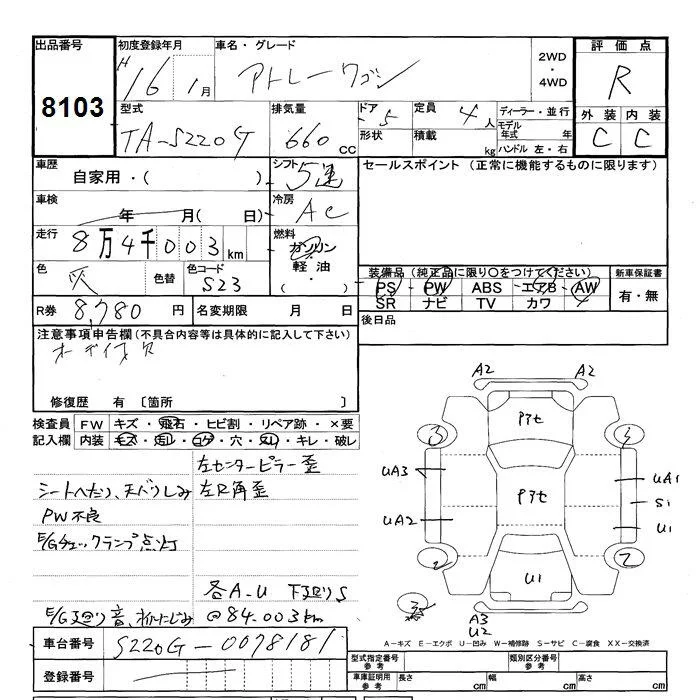 出品番号 初度登録年月 車名・グレード 2WD・4WD 評価点
8103 H16年1月 アトレーワゴン R
型式 排気量 ドア 定員 ディーラー・並行 外装 内装
TA-S220G 660cc 5 4人 モデル年式 年 C C
形状 積載 kg ハンドル 左・右
車歴 自家用・( ) シフト 5速 セールスポイント (正常に機能するものに限ります)
車検 年 月( 日) 冷房 AC
走行 8万4千003km 燃料 ガソリン・軽油・( )
色 灰 色替 色コード S23
装備品(純正品に限り○をつけてください) 新車保証書
PS・PW・ABS・エアB・AW 有・無
SR ナビ TV カワ
R券 8,780円 名変期限 月 日 後日品
注意事項申告欄(不具合内容等は具体的に記入して下さい)
オーディオ欠
修復歴 有 〔箇所 〕
検査員 FW キズ・飛石・ヒビ割・リペア跡・×要
記入欄 内装 キズ・汚レ・コゲ・穴・スレ・キレ・破レ
左センターピラー歪
シートへたり、天バリしみ 左R角歪
PW不良
E/Gチェックランプ点灯
各A-U 下廻りS
E/G廻り音、オイルにじみ @84.003km
A2 A2
Pｱt
3 3
UA3 UA1
Pｱt S1
UA2 U1
2 2
U1
A3
U2
A-キズ E-エクボ U-凹み W-補修跡 S-サビ C-腐食 XX-交換済
車台番号 S220G-0078181
登録番号
型式指定番号 参考 類別区分番号 参考
車庫証明用 参考 長さ cm 幅 cm 高さ cm